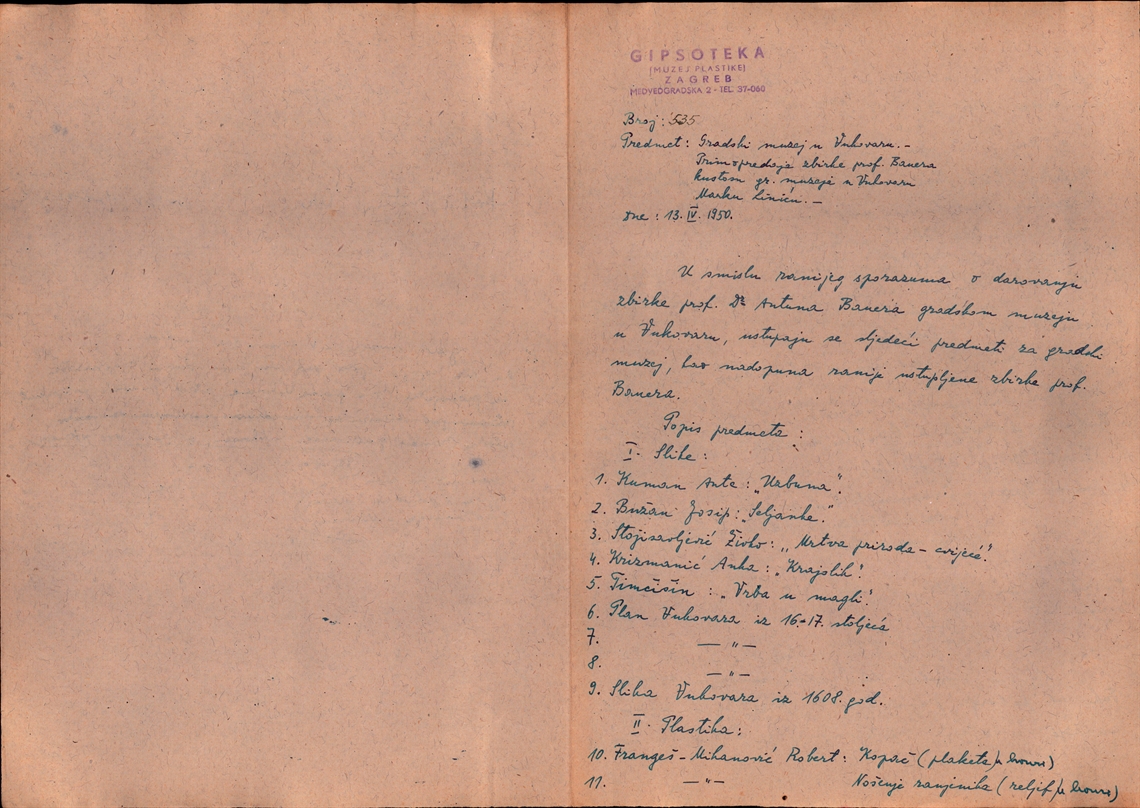 GIPSOTEKA
(MUZEJ PLASTIKE)
ZAGREB
MEDVEDGRADSKA 2 - TEL. 37-060
Broj : 535
Predmet : Gradski muzej u Vukovaru. -
Primopredaja zbirke prof. Bauera
kustosu gr. muzeja u Vukovaru
Marku Liniću. -
Dne : 13. IV. 1950.
U smislu ranijeg sporazuma o darovanju
zbirke prof. Dr Antuna Bauera gradskom muzeju
u Vukovaru, ustupaju se sljedeći predmeti za gradski
muzej, kao nadopuna ranije ustupljene zbirke prof.
Bauera.
Popis predmeta :
I. Slike :
1. Kuman Ante : „Uzbuna".
2. Bužan Josip : „Seljanke."
3. Stojisavljević Živko : „Mrtva priroda - cvijeće".
4. Krizmanić Anka : „Krajolik".
5. Timčišin : „Vrba u magli".
6. Plan Vukovara iz 16-17. stoljeća
7. — " —
8. — " —
9. Slika Vukovara iz 1608. god.
II. Plastika :
10. Frangeš - Mihanović Robert : Kopač (plaketa/u bronci)
11. — " — Nošenje ranjenika (reljef/u bronci)